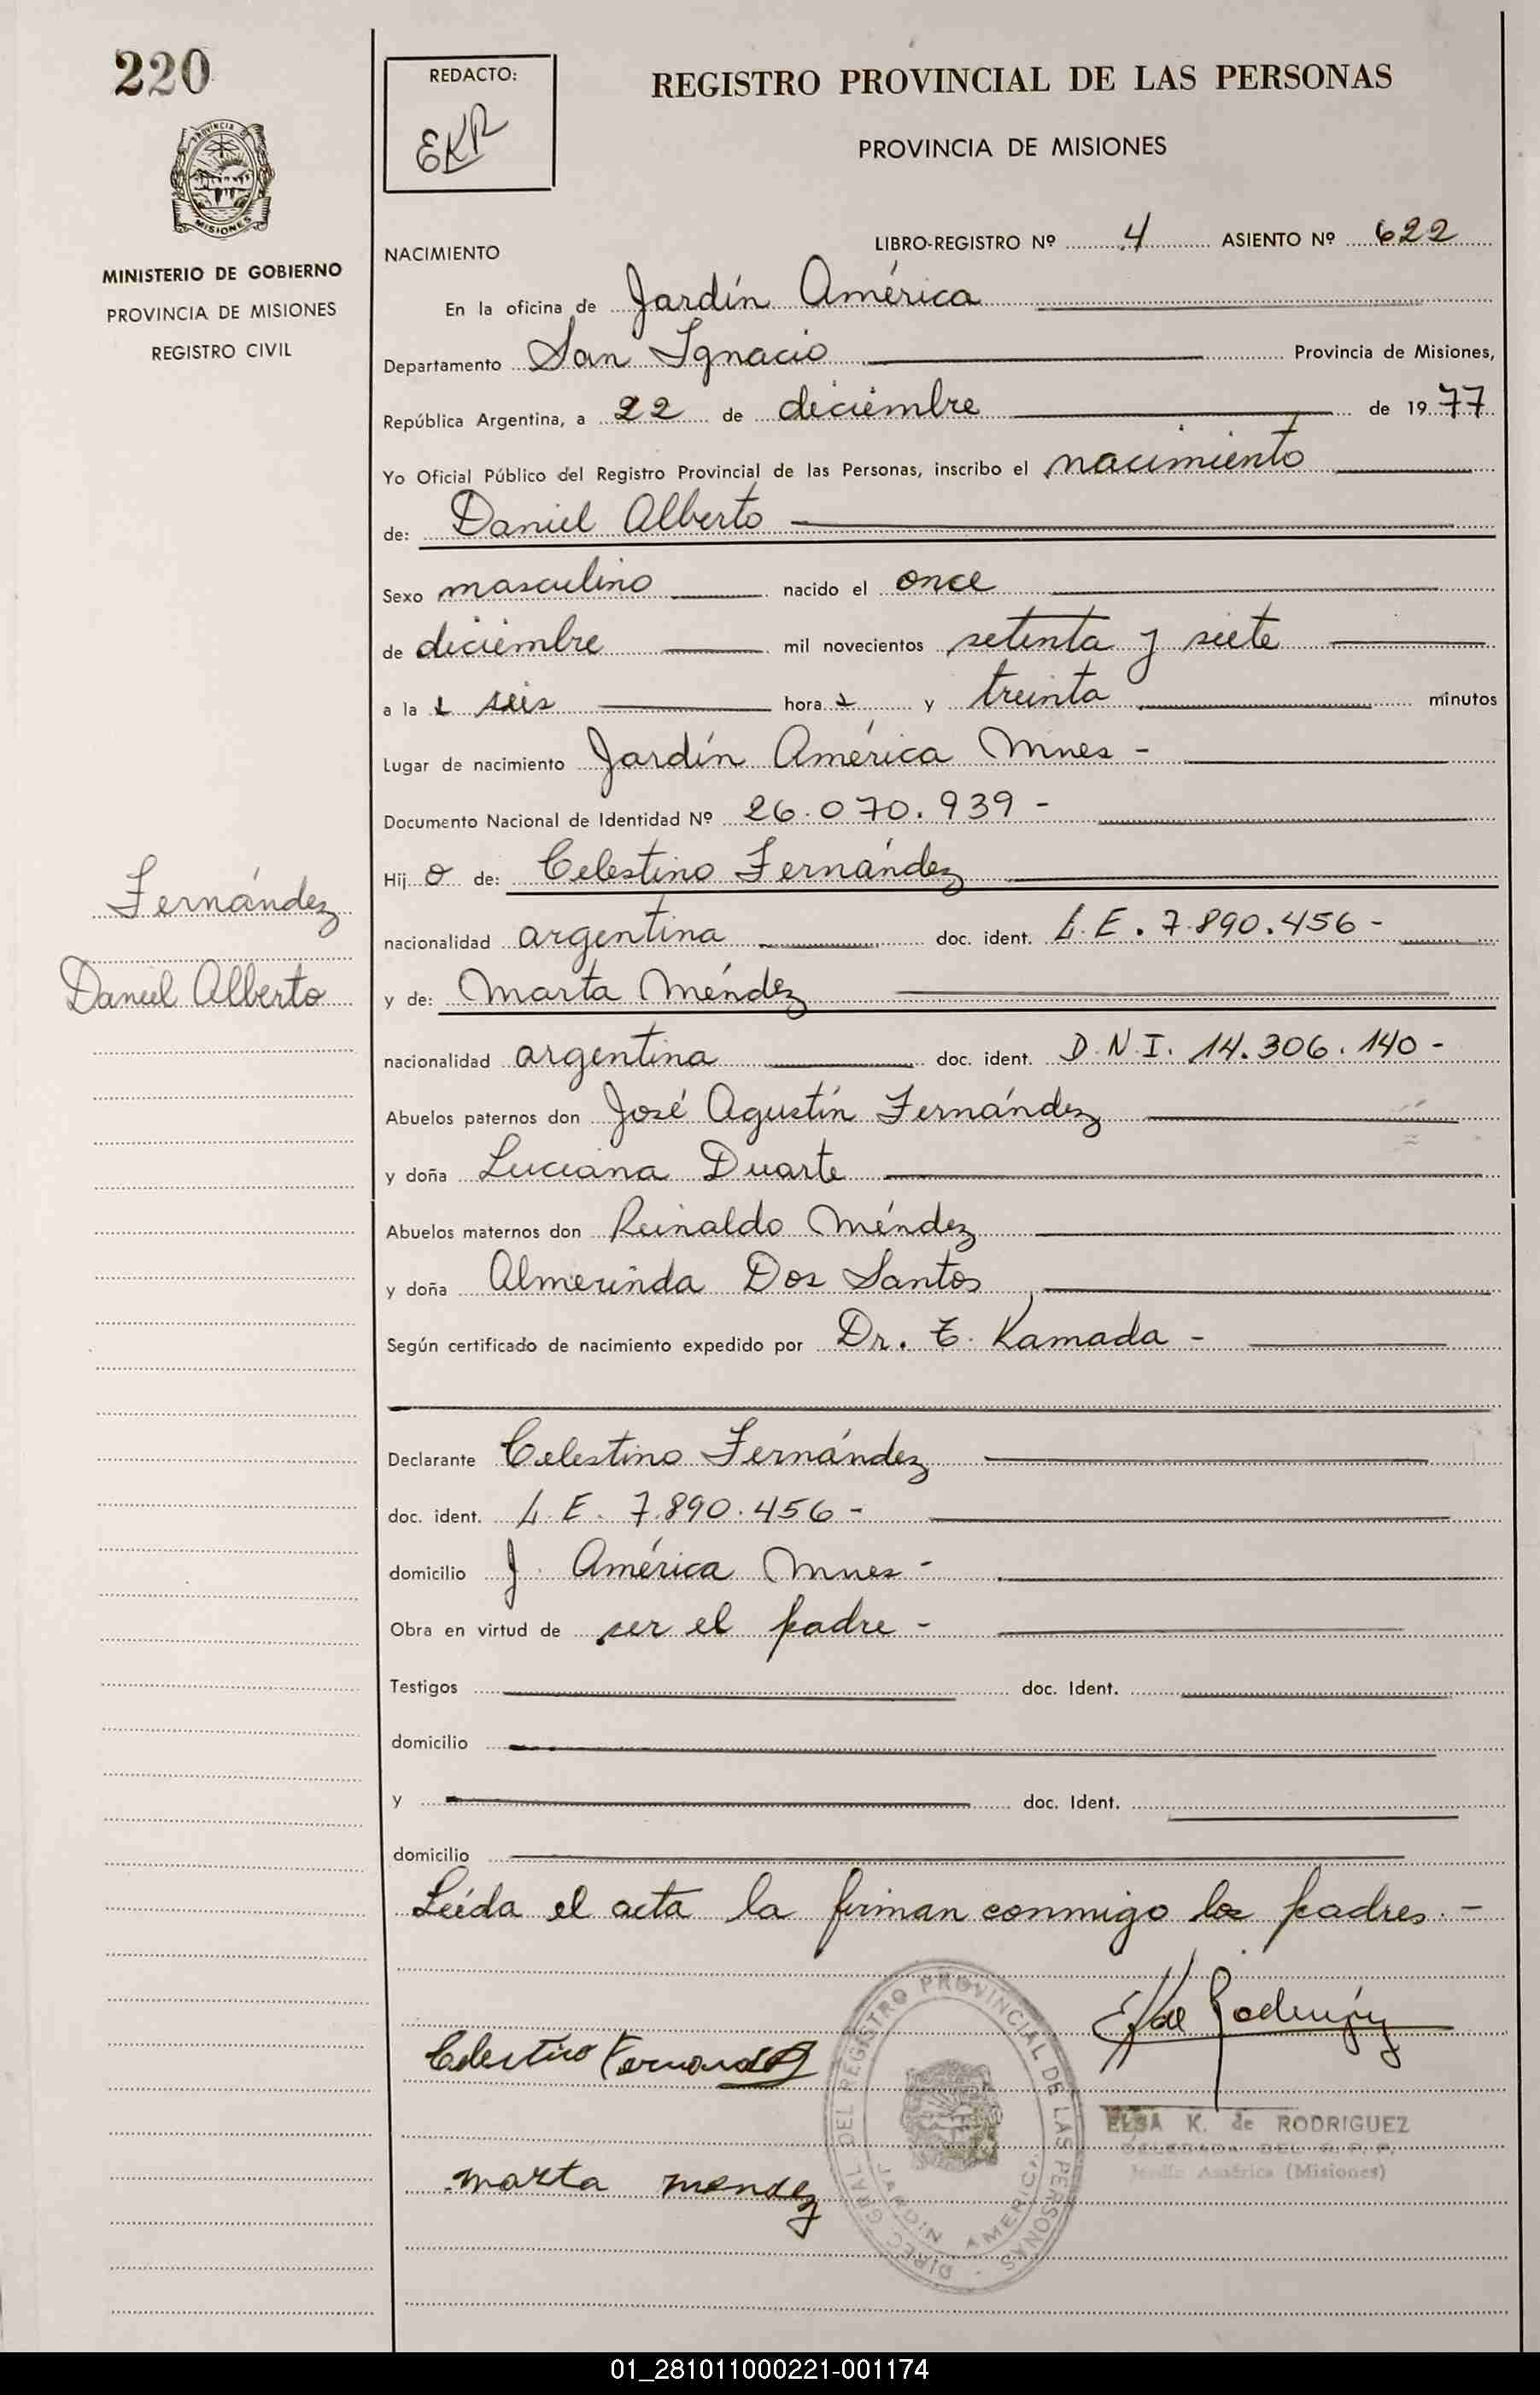 220
REDACTO:
EKR
REGISTRO PROVINCIAL DE LAS PERSONAS
PROVINCIA DE MISIONES
PROVINCIA DE
MISIONES
MINISTERIO DE GOBIERNO
PROVINCIA DE MISIONES
REGISTRO CIVIL
NACIMIENTO
LIBRO-REGISTRO Nº 4 ASIENTO Nº 622
En la oficina de Jardín América
Departamento San Ignacio Provincia de Misiones,
República Argentina, a 22 de diciembre de 1977
Yo Oficial Público del Registro Provincial de las Personas, inscribo el nacimiento
de: Daniel Alberto
Sexo masculino nacido el once
de diciembre mil novecientos setenta y siete
a las seis horas y treinta minutos
Lugar de nacimiento Jardín América Mnes -
Documento Nacional de Identidad Nº 26.070.939 -
Hijo de: Celestino Fernández
Fernández
nacionalidad argentina doc. ident. L.E. 7.890.456 -
Daniel Alberto
y de: Marta Méndez
nacionalidad argentina doc. ident. D.N.I. 14.306.140 -
Abuelos paternos don José Agustín Fernández
y doña Luciana Duarte
Abuelos maternos don Reinaldo Méndez
y doña Almerinda Dos Santos
Según certificado de nacimiento expedido por Dr. T. Kamada -
Declarante Celestino Fernández
doc. ident. L.E. 7.890.456 -
domicilio J. América Mnes -
Obra en virtud de ser el padre -
Testigos doc. Ident.
domicilio
y doc. Ident.
domicilio
Leída el acta la firman conmigo los padres. -
E K de Rodriguez
Celestino Fernandez
marta mendez
DIREC. GRAL. DEL REGISTRO PROVINCIAL DE LAS PERSONAS
JARDIN AMERICA
ELSA K. de RODRIGUEZ
DELEGADA DEL R. P. P.
Jardín América (Misiones)
01_281011000221-001174